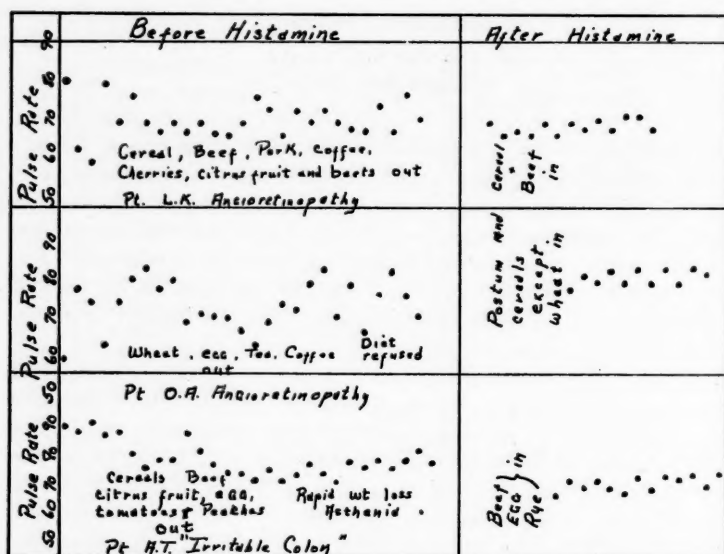 Before Histamine
After Histamine
Pulse Rate
90
80
70
60
50
Cereal, Beef, Pork, Coffee,
Cherries, citrus fruit and beets out
Pt. L.K. Angioretinopathy
Cereal
+
Beef
in
Pulse Rate
90
80
70
60
50
Wheat, egg, Tea, Coffee
out
Diet
refused
Pt O.A. Angioretinopathy
Postum and
cereals
except
wheat in
Pulse Rate
90
80
70
60
50
Cereals Beef
citrus fruit, egg,
tomatoes Peaches
out
Rapid wt loss
Asthenia
Pt A.T. "Irritable Colon"
Beef
Egg
Rye
in